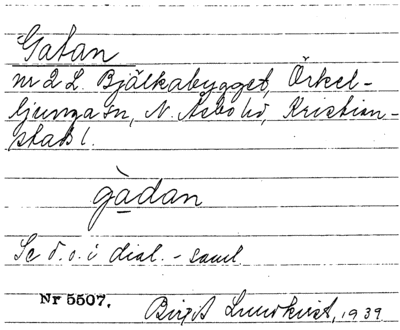 Gatan
nr 2 L. Bjälkabygget, Örkel-
ljunga sn, N. Åsbo hd, Kristian-
stads l.
gàdan
Se d. o. i dial. - saml
Nr 5507.
Birgit Lundkvist, 1939